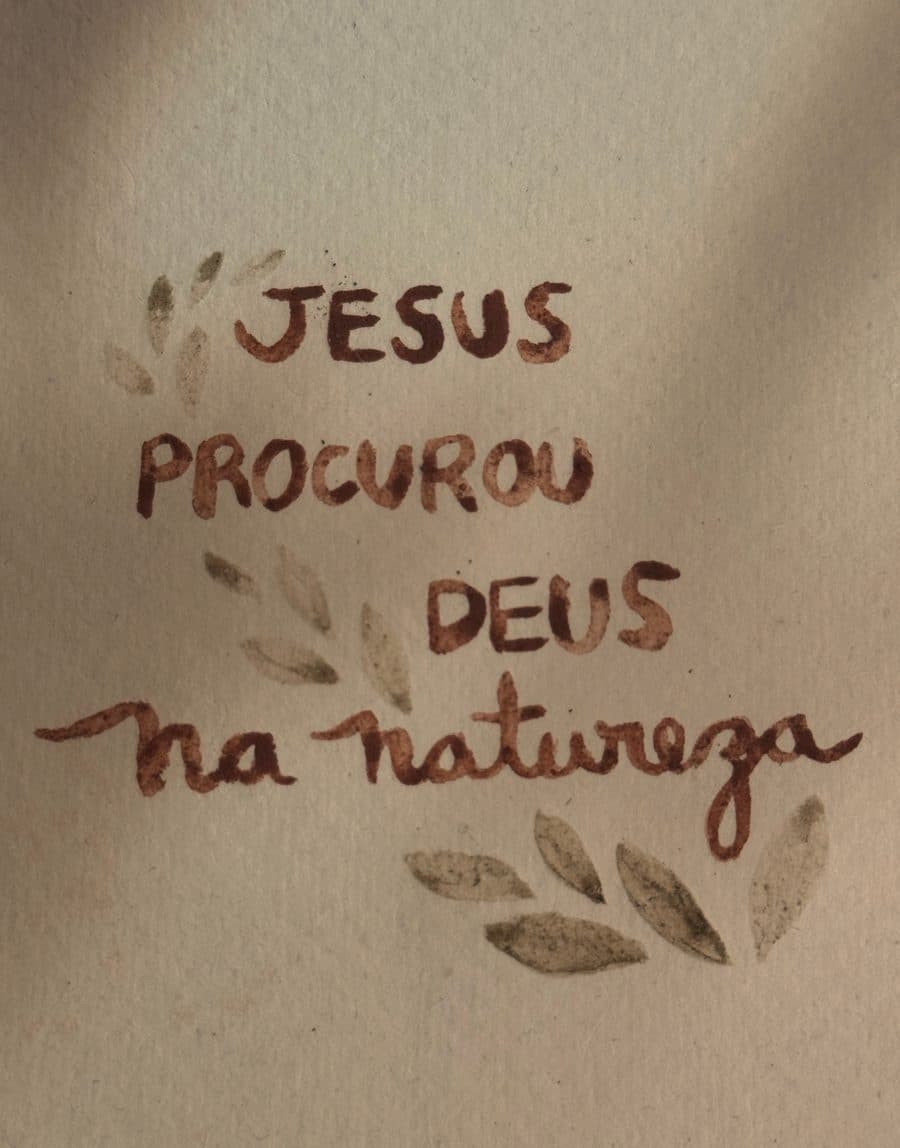 JESUS
PROCUROU
DEUS
na natureza